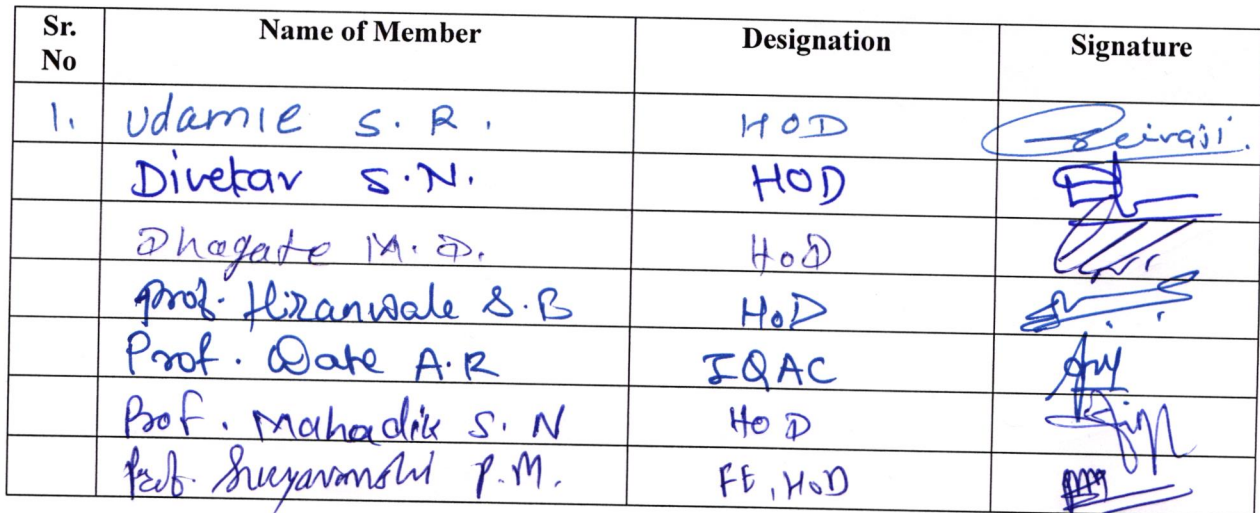 Sr. No Name of Member Designation Signature
1. Udamle S. R. HOD
Divekar S.N. HOD
Dhagate M. D. HoD
Prof. Hiranwale S.B HoD
Prof. Date A.R IQAC
Prof. Mahadik S. N HoD
Prof. Suryavanshi P.M. FE, HoD